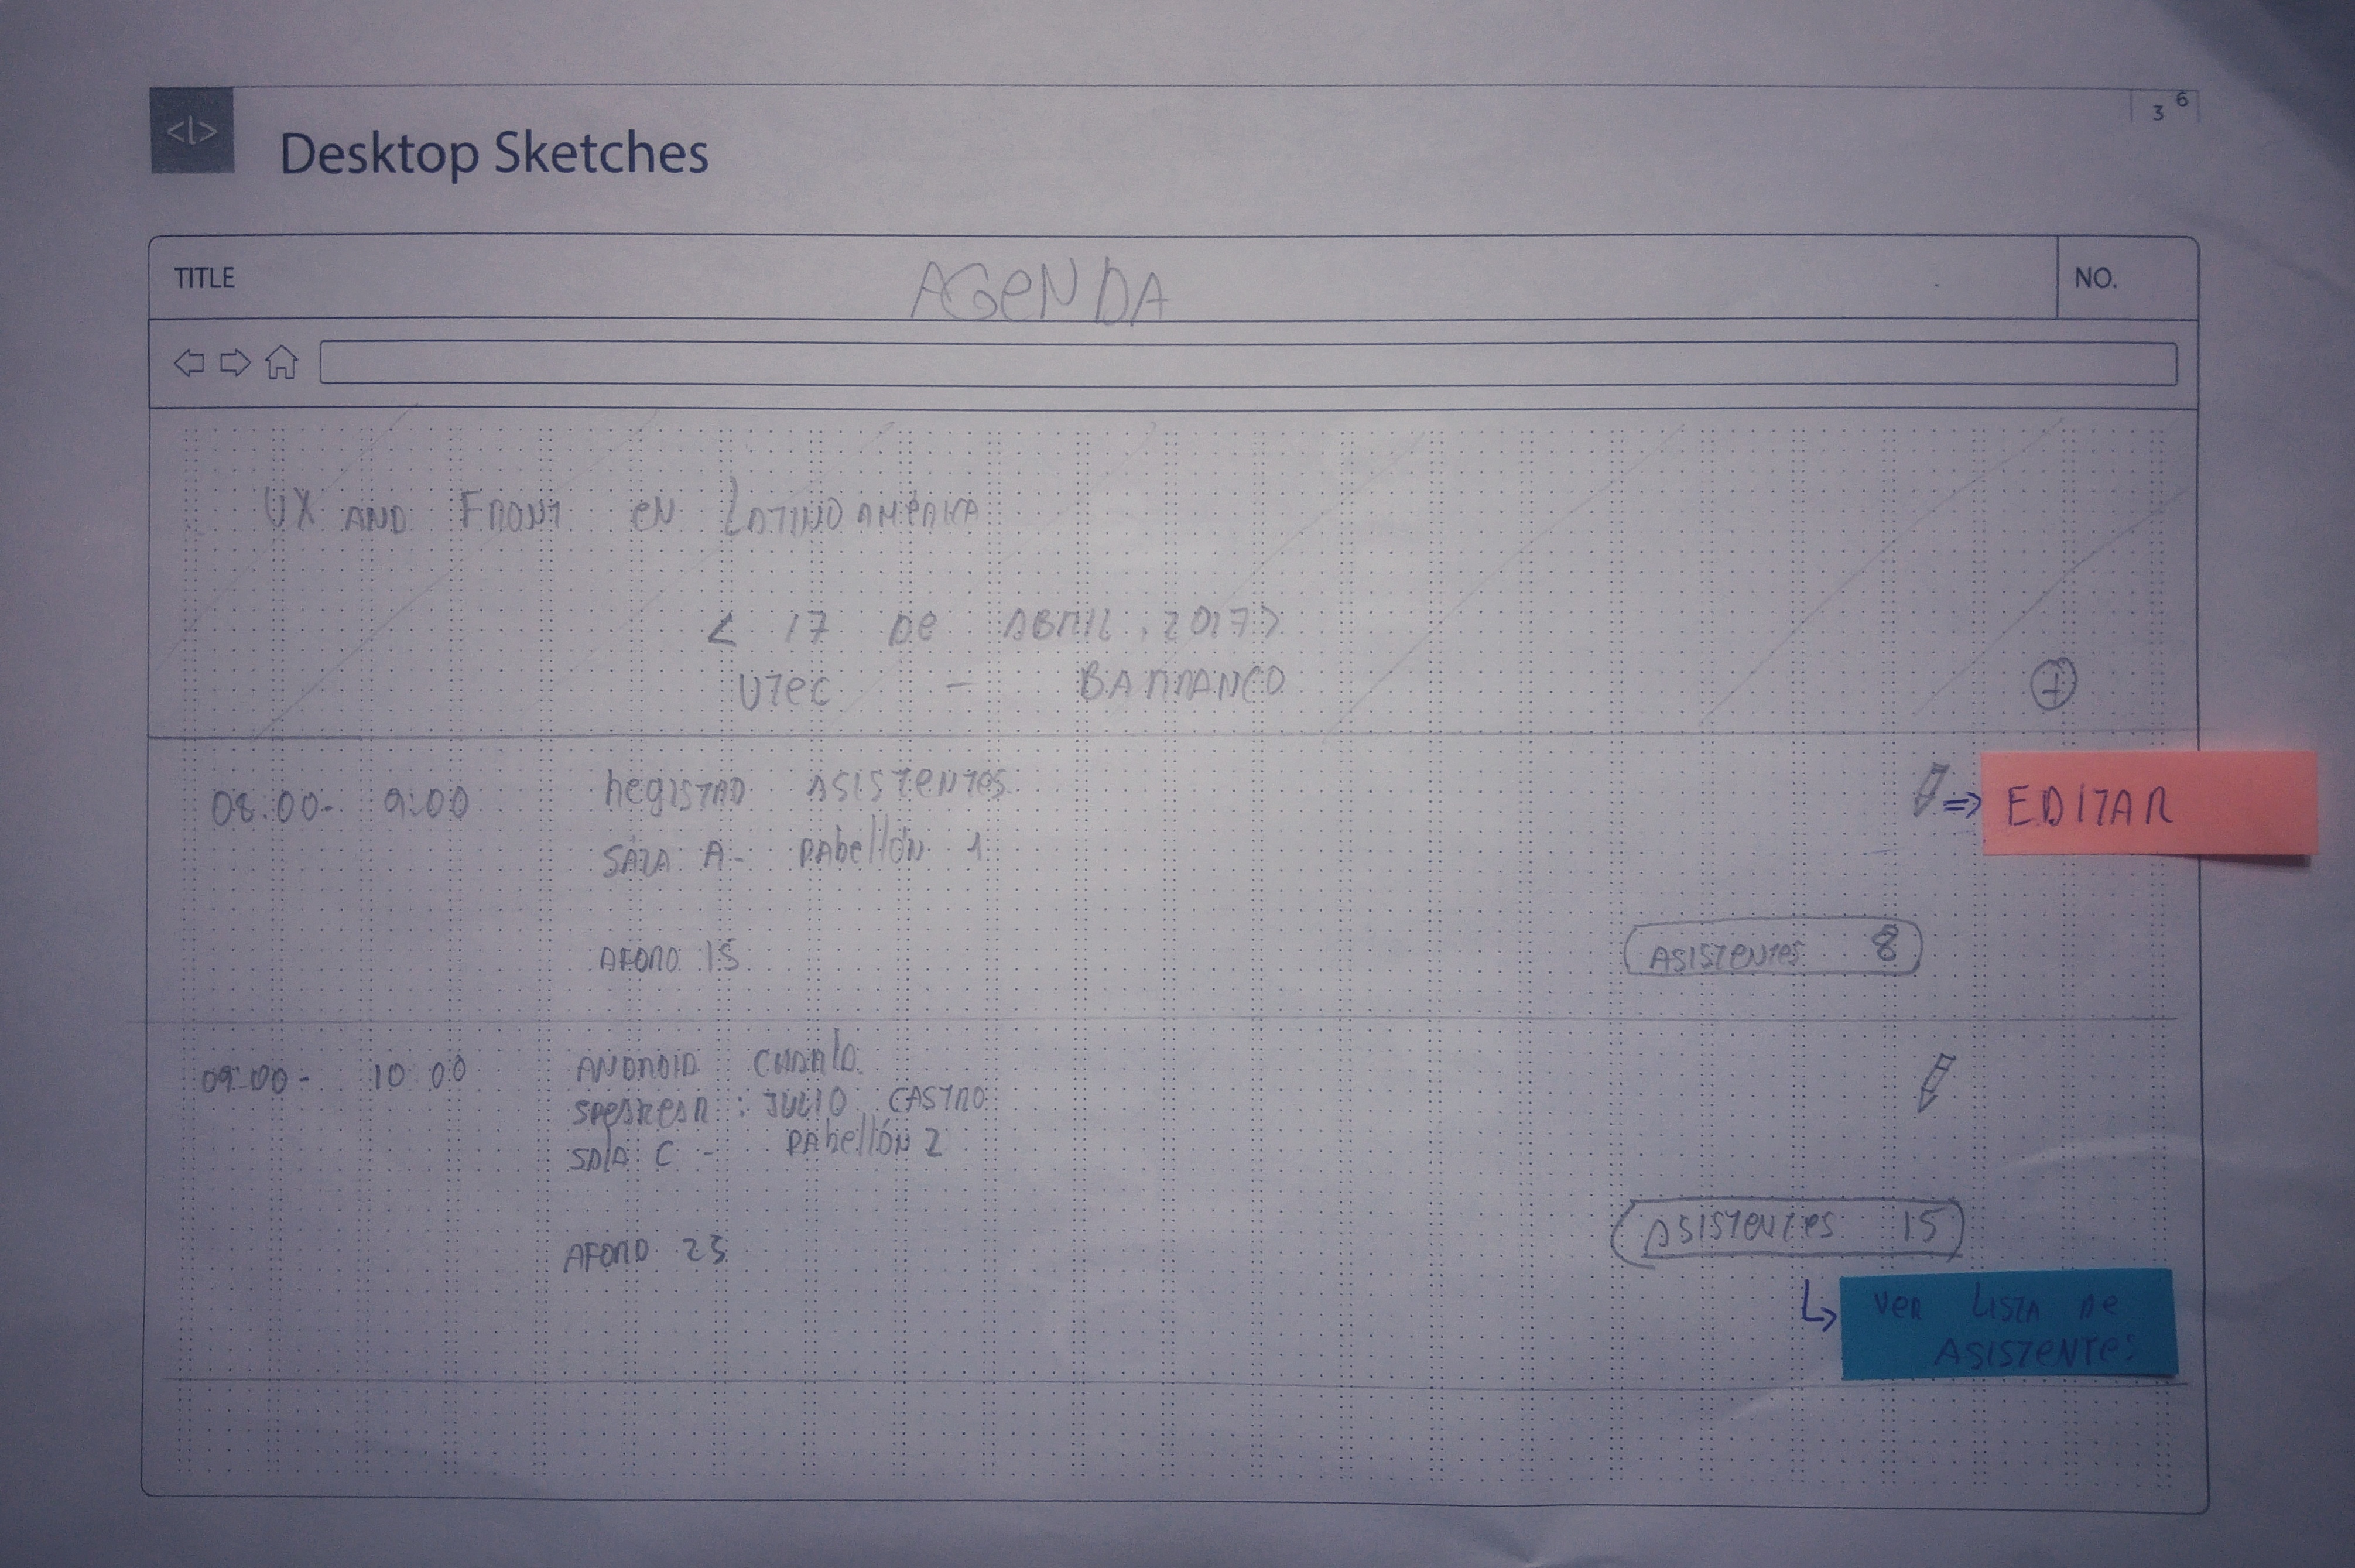 <|>
Desktop Sketches
3 6
TITLE AGENDA NO.
UX AND FRONT EN LATINOAMÉRICA
< 17 DE ABRIL, 2017>
UTEC - BARRANCO
+
08:00- 9:00 REGISTRO ASISTENTES
EDITAR
SALA A- PABELLÓN 1
AFORO 15 ASISTENTES 8
09:00- 10:00 ANDROID CHARLA
SPEAKEAR : JULIO CASTRO
SALA C - PABELLÓN 2
ASISTENTES 15
AFORO 25
VER LISTA DE
ASISTENTES